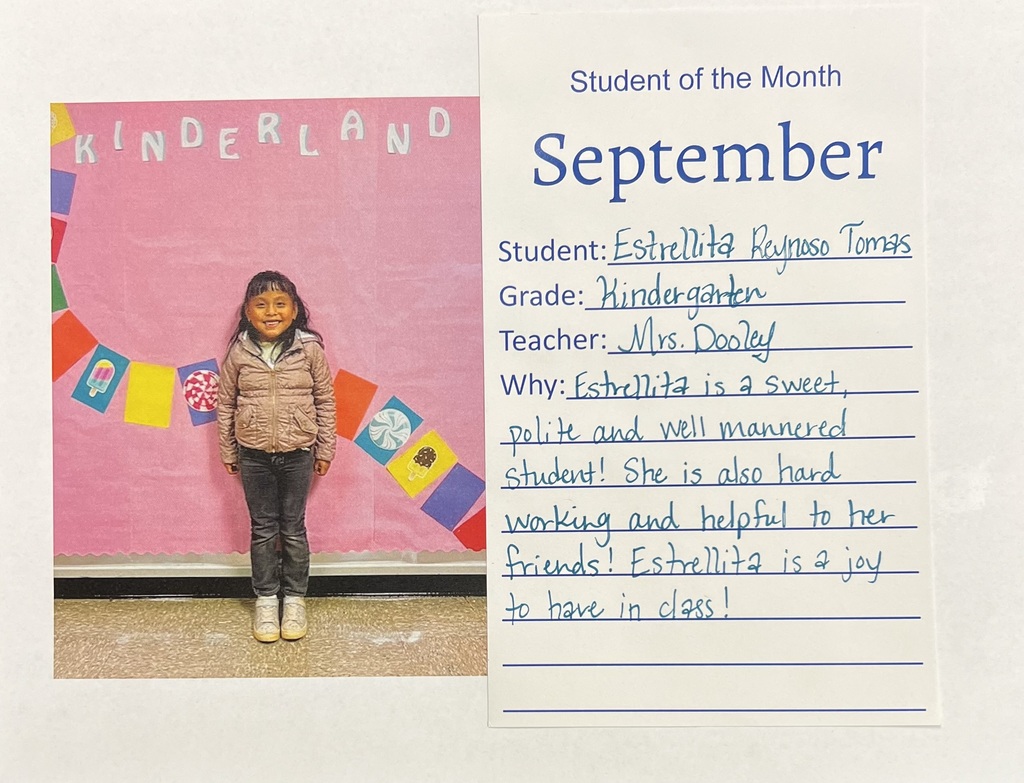 KINDERLAND
Student of the Month
September
Student: Estrellita Reynoso Tomas
Grade: Kindergarten
Teacher: Mrs. Dooley
Why: Estrellita is a sweet,
polite and well mannered
student! She is also hard
working and helpful to her
friends! Estrellita is a joy
to have in class!